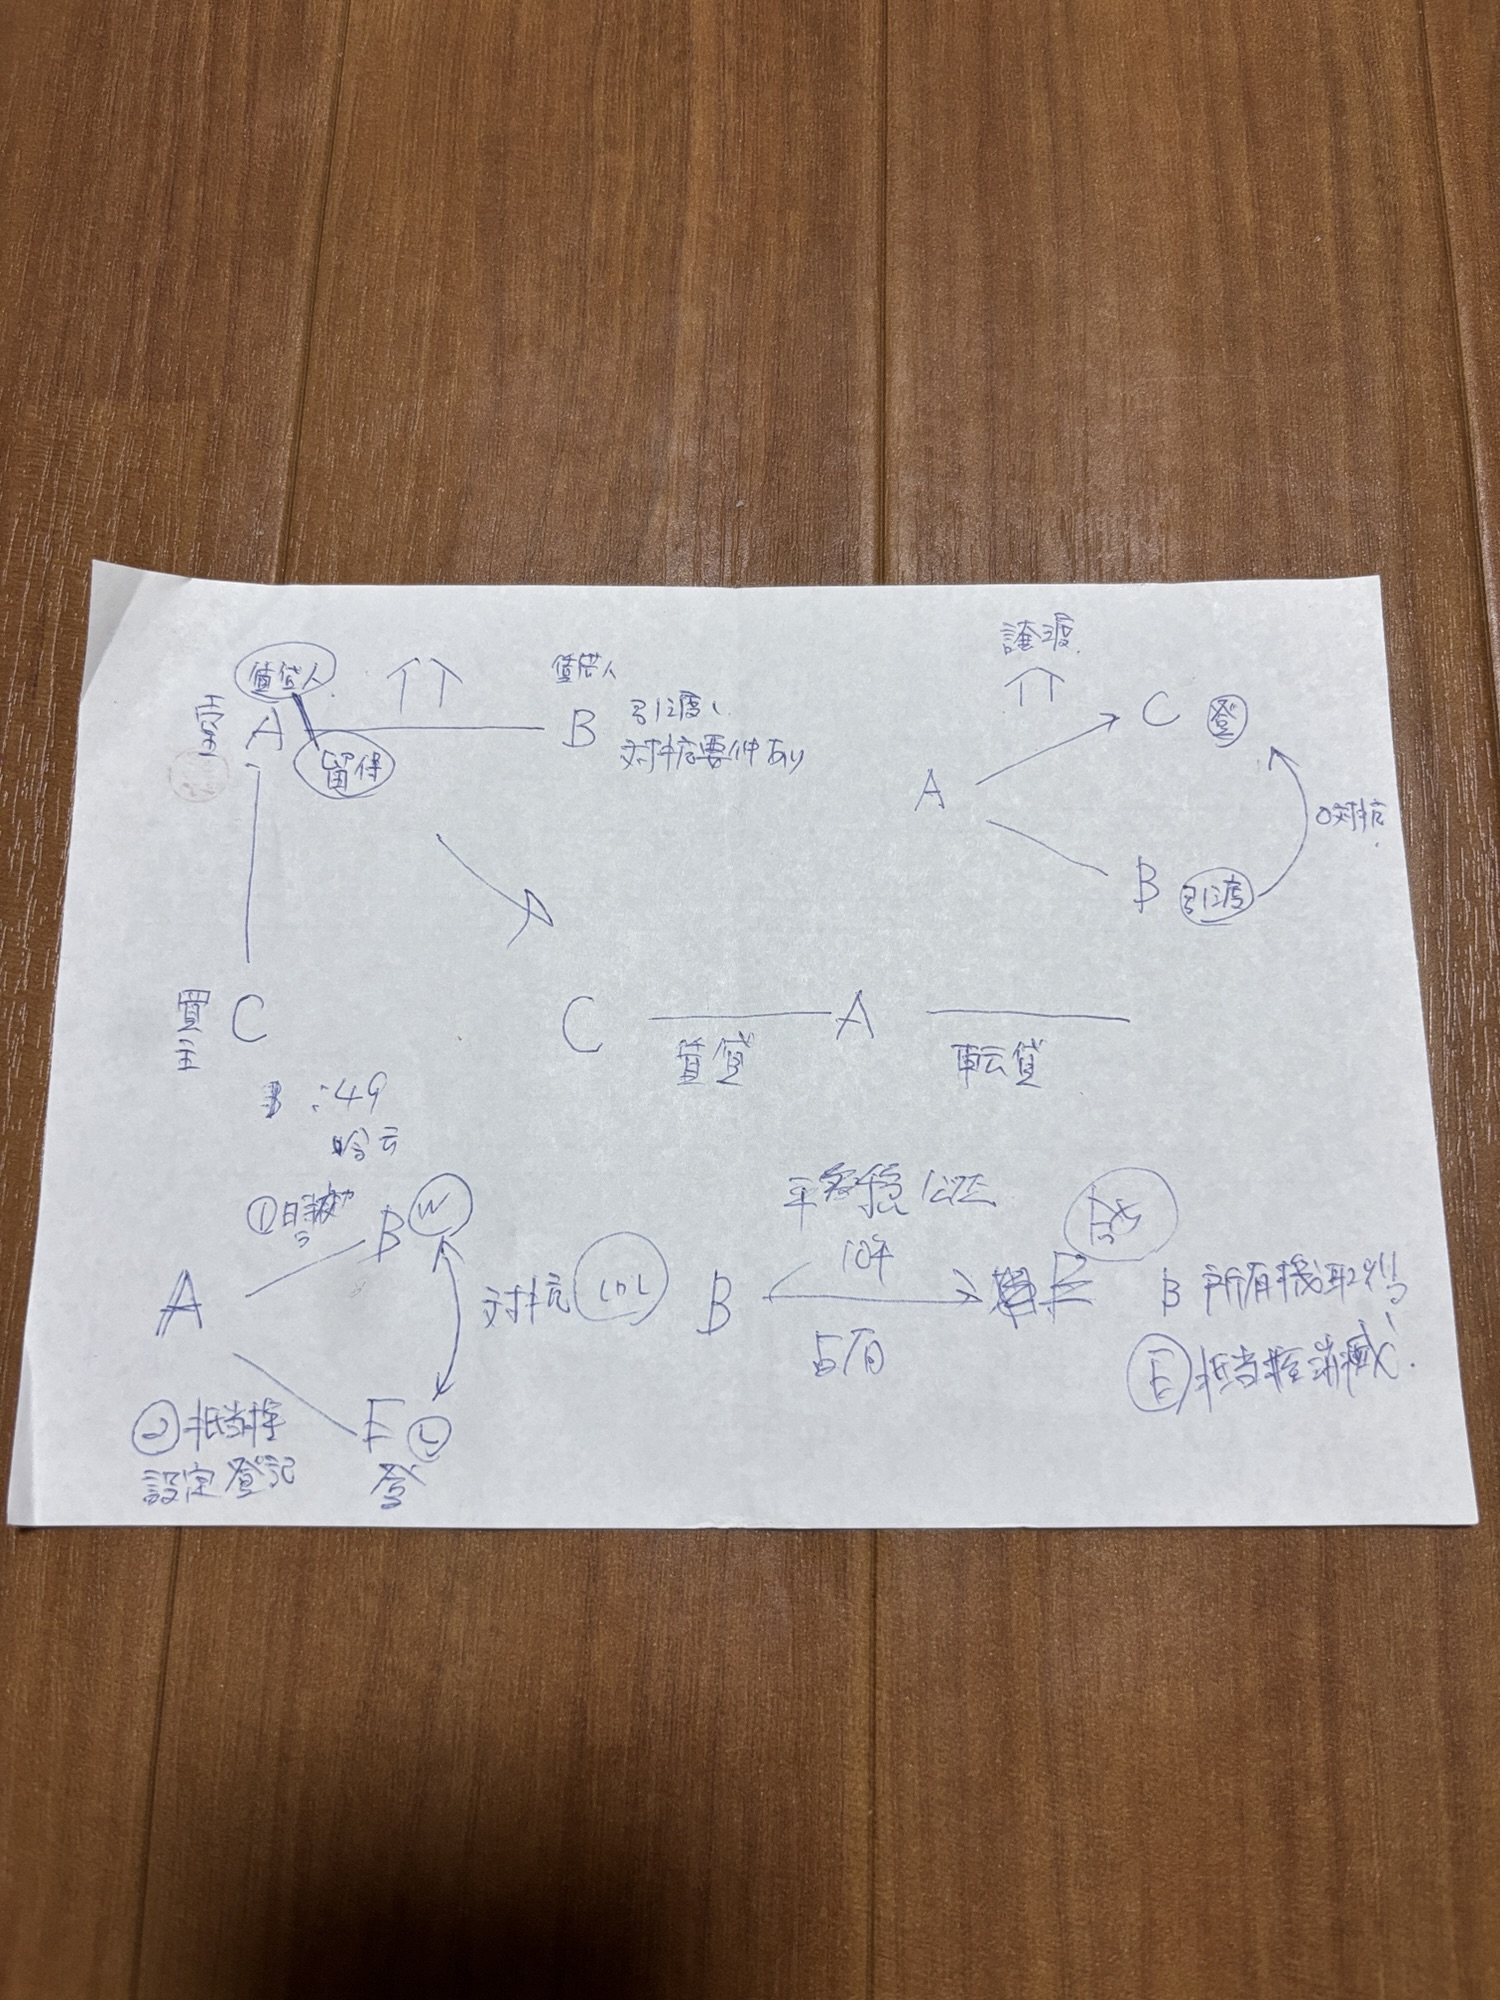 賃貸人
賃借人
A
留保
B
引渡し
対抗要件あり
買主
C
譲渡
A
C
登
B
引渡
対抗
C
賃貸
A
転貸
:49
①時効
A
B
W
対抗
②抵当権
設定登記
E
L
登
平穏 公然
10年
B
占有
E
B 所有権取得
E 抵当権消滅